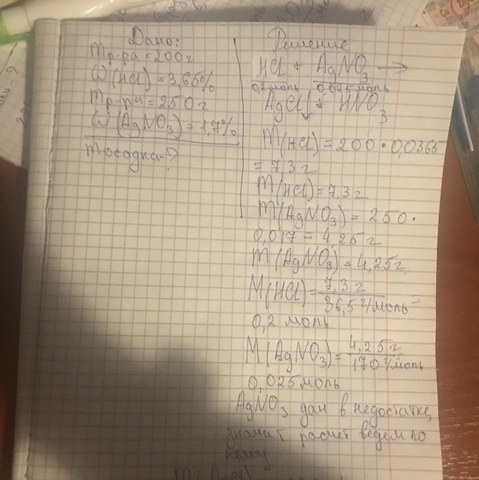 Дано:
mр-ра = 200г
W(HCl) = 3,65%
mр-ра = 250г
W(AgNO3) = 1,7%
m осадка - ?
Решение
HCl + AgNO3 →
0,2 моль 0,025 моль
AgCl↓ + HNO3
m(HCl) = 200 · 0,0365
= 7,3г
m(HCl) = 7,3г
m(AgNO3) = 250 ·
0,017 = 4,25г
m(AgNO3) = 4,25г
M(HCl) = 7,3г / 36,5г/моль =
0,2 моль
M(AgNO3) = 4,25г / 170г/моль =
0,025 моль
AgNO3 дан в недостатке,
значит расчет ведем по
нему